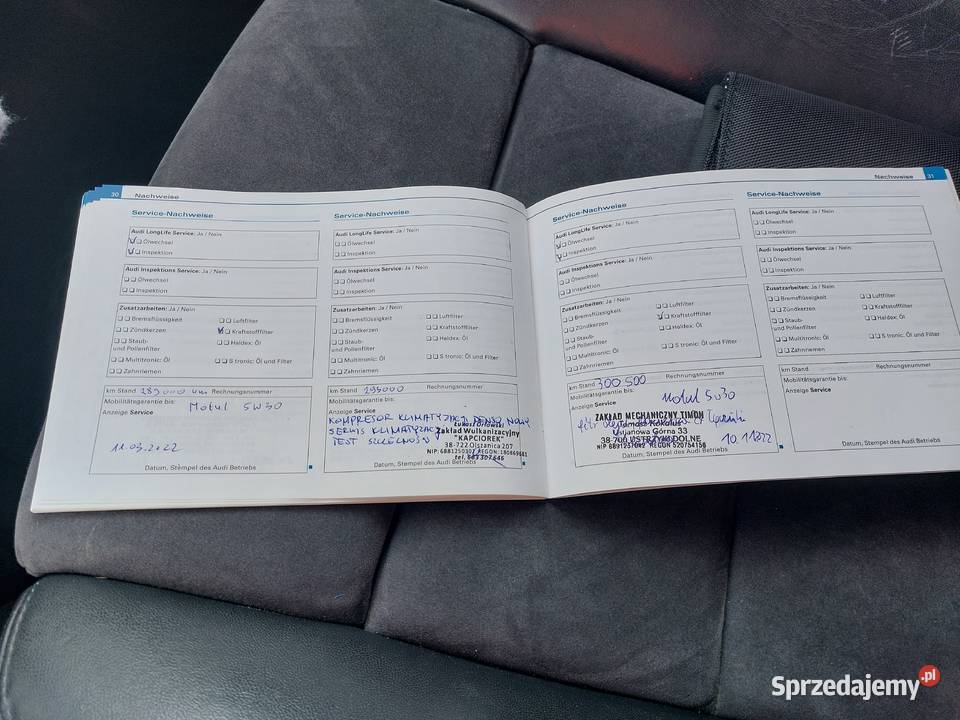 30 Nachweise
Service-Nachweise
Audi LongLife Service: Ja / Nein
Ölwechsel
Inspektion
Audi Inspektions Service: Ja / Nein
Ölwechsel
Inspektion
Zusatzarbeiten: Ja / Nein
Bremsflüssigkeit
Luftfilter
Zündkerzen
Kraftstofffilter
Staub-
und Pollenfilter
Haldex: Öl
Multitronic: Öl
S tronic: Öl und Filter
Zahnriemen
km Stand 289000 km Rechnungsnummer
Mobilitätsgarantie bis:
Motul 5W30
Anzeige Service
11.05.2022
Datum, Stempel des Audi Betriebs
Service-Nachweise
Audi LongLife Service: Ja / Nein
Ölwechsel
Inspektion
Audi Inspektions Service: Ja / Nein
Ölwechsel
Inspektion
Zusatzarbeiten: Ja / Nein
Bremsflüssigkeit
Luftfilter
Zündkerzen
Kraftstofffilter
Staub-
und Pollenfilter
Haldex: Öl
Multitronic: Öl
S tronic: Öl und Filter
Zahnriemen
km Stand 295000 Rechnungsnummer
Mobilitätsgarantie bis:
Anzeige Service
KOMPRESOR KLIMATYZACJI DENSO NOWY
SERWIS KLIMATYZACJI
TEST SZCZELNOŚCI
Zakład Wulkanizacyjny
"KAPCIOREK"
38-722 Olszanica 207
Datum, Stempel des Audi Betriebs
Nachweise 31
Service-Nachweise
Audi LongLife Service: Ja / Nein
Ölwechsel
Inspektion
Audi Inspektions Service: Ja / Nein
Ölwechsel
Inspektion
Zusatzarbeiten: Ja / Nein
Bremsflüssigkeit
Luftfilter
Zündkerzen
Kraftstofffilter
Staub-
und Pollenfilter
Haldex: Öl
Multitronic: Öl
S tronic: Öl und Filter
Zahnriemen
km Stand 300 500 Rechnungsnummer
Mobilitätsgarantie bis:
Motul 5W30
Anzeige Service
ZAKŁAD MECHANICZNY TIMON
Górna 33
38-700 USTRZYKI DOLNE
Datum, Stempel des Audi Betriebs
Service-Nachweise
Audi LongLife Service: Ja / Nein
Ölwechsel
Inspektion
Audi Inspektions Service: Ja / Nein
Ölwechsel
Inspektion
Zusatzarbeiten: Ja / Nein
Bremsflüssigkeit
Luftfilter
Zündkerzen
Kraftstofffilter
Staub-
und Pollenfilter
Haldex: Öl
Multitronic: Öl
S tronic: Öl und Filter
Zahnriemen
km Stand Rechnungsnummer
Mobilitätsgarantie bis:
Anzeige Service
Datum, Stempel des Audi Betriebs
Sprzedajemy.pl